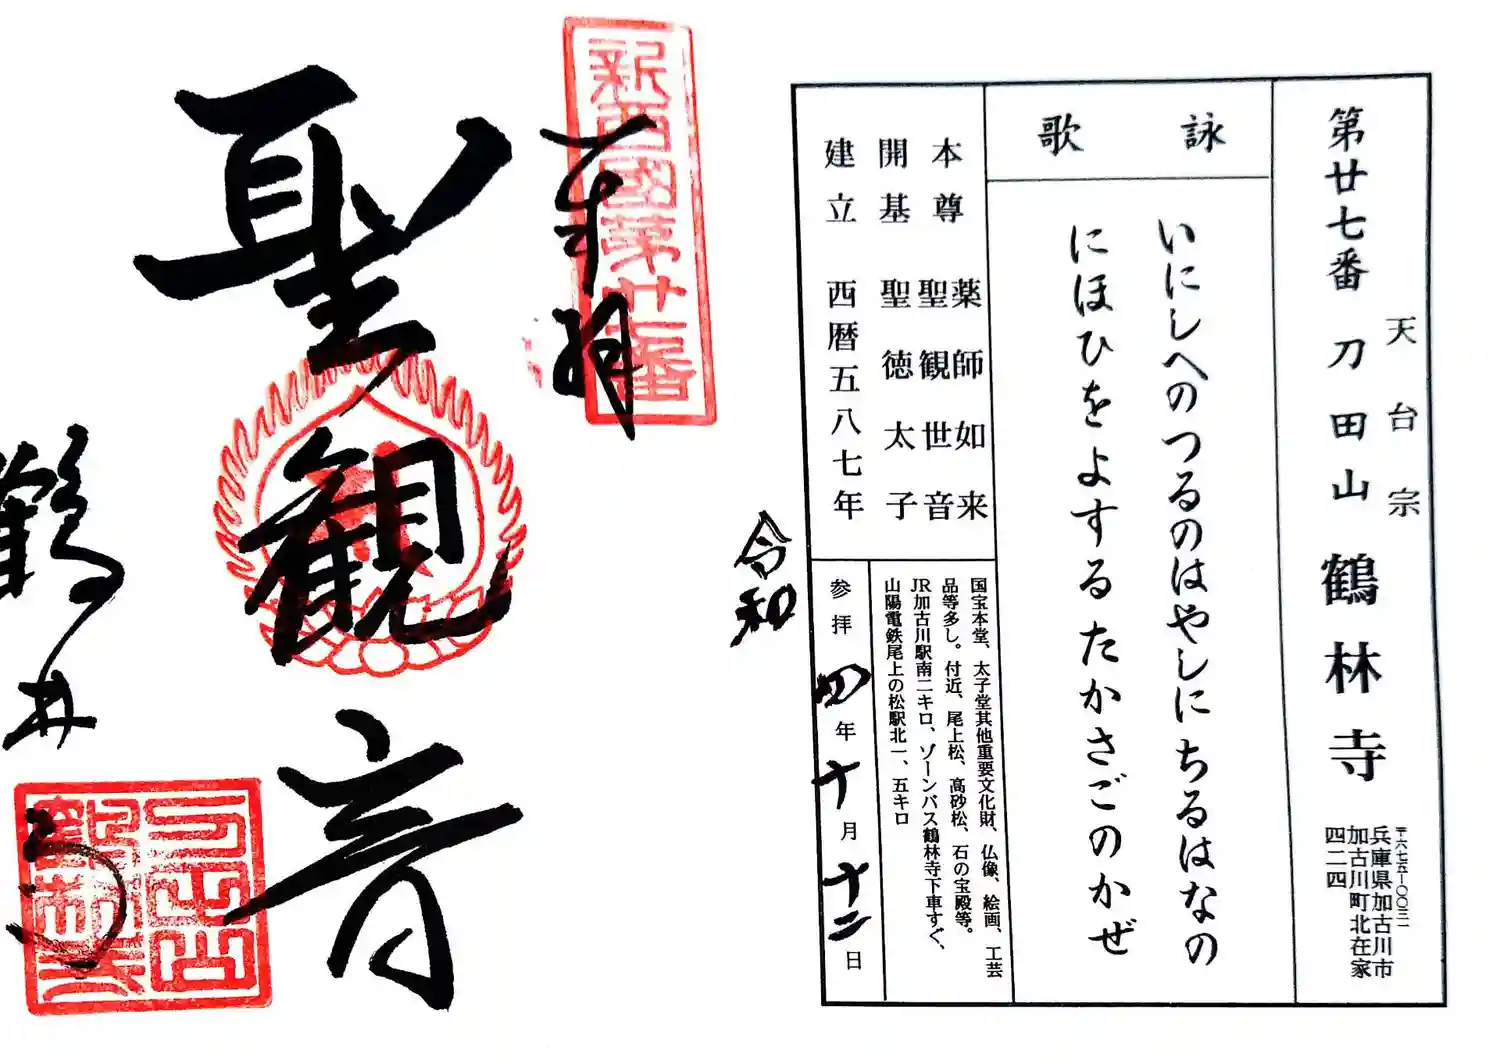 第廿七番 刀田山 鶴林寺
天台宗
〒六七五―〇〇三一
兵庫県加古川市
加古川町北在家
四二四
詠歌
いにしへのつるのはやしにちるはなの
にほひをよするたかさごのかぜ
本尊 薬師如来
聖観世音
開基 聖徳太子
建立 西暦五八七年
国宝本堂、太子堂其他重要文化財、仏像、絵画、工芸
品等多し。付近、尾上松、高砂松、石の宝殿等。
JR加古川駅南二キロ、ゾーンバス鶴林寺下車すぐ、
山陽電鉄尾上の松駅北一、五キロ
参拝 四年十月十二日
令和
新西國第廿七番
奉拝
聖観音
鶴林寺